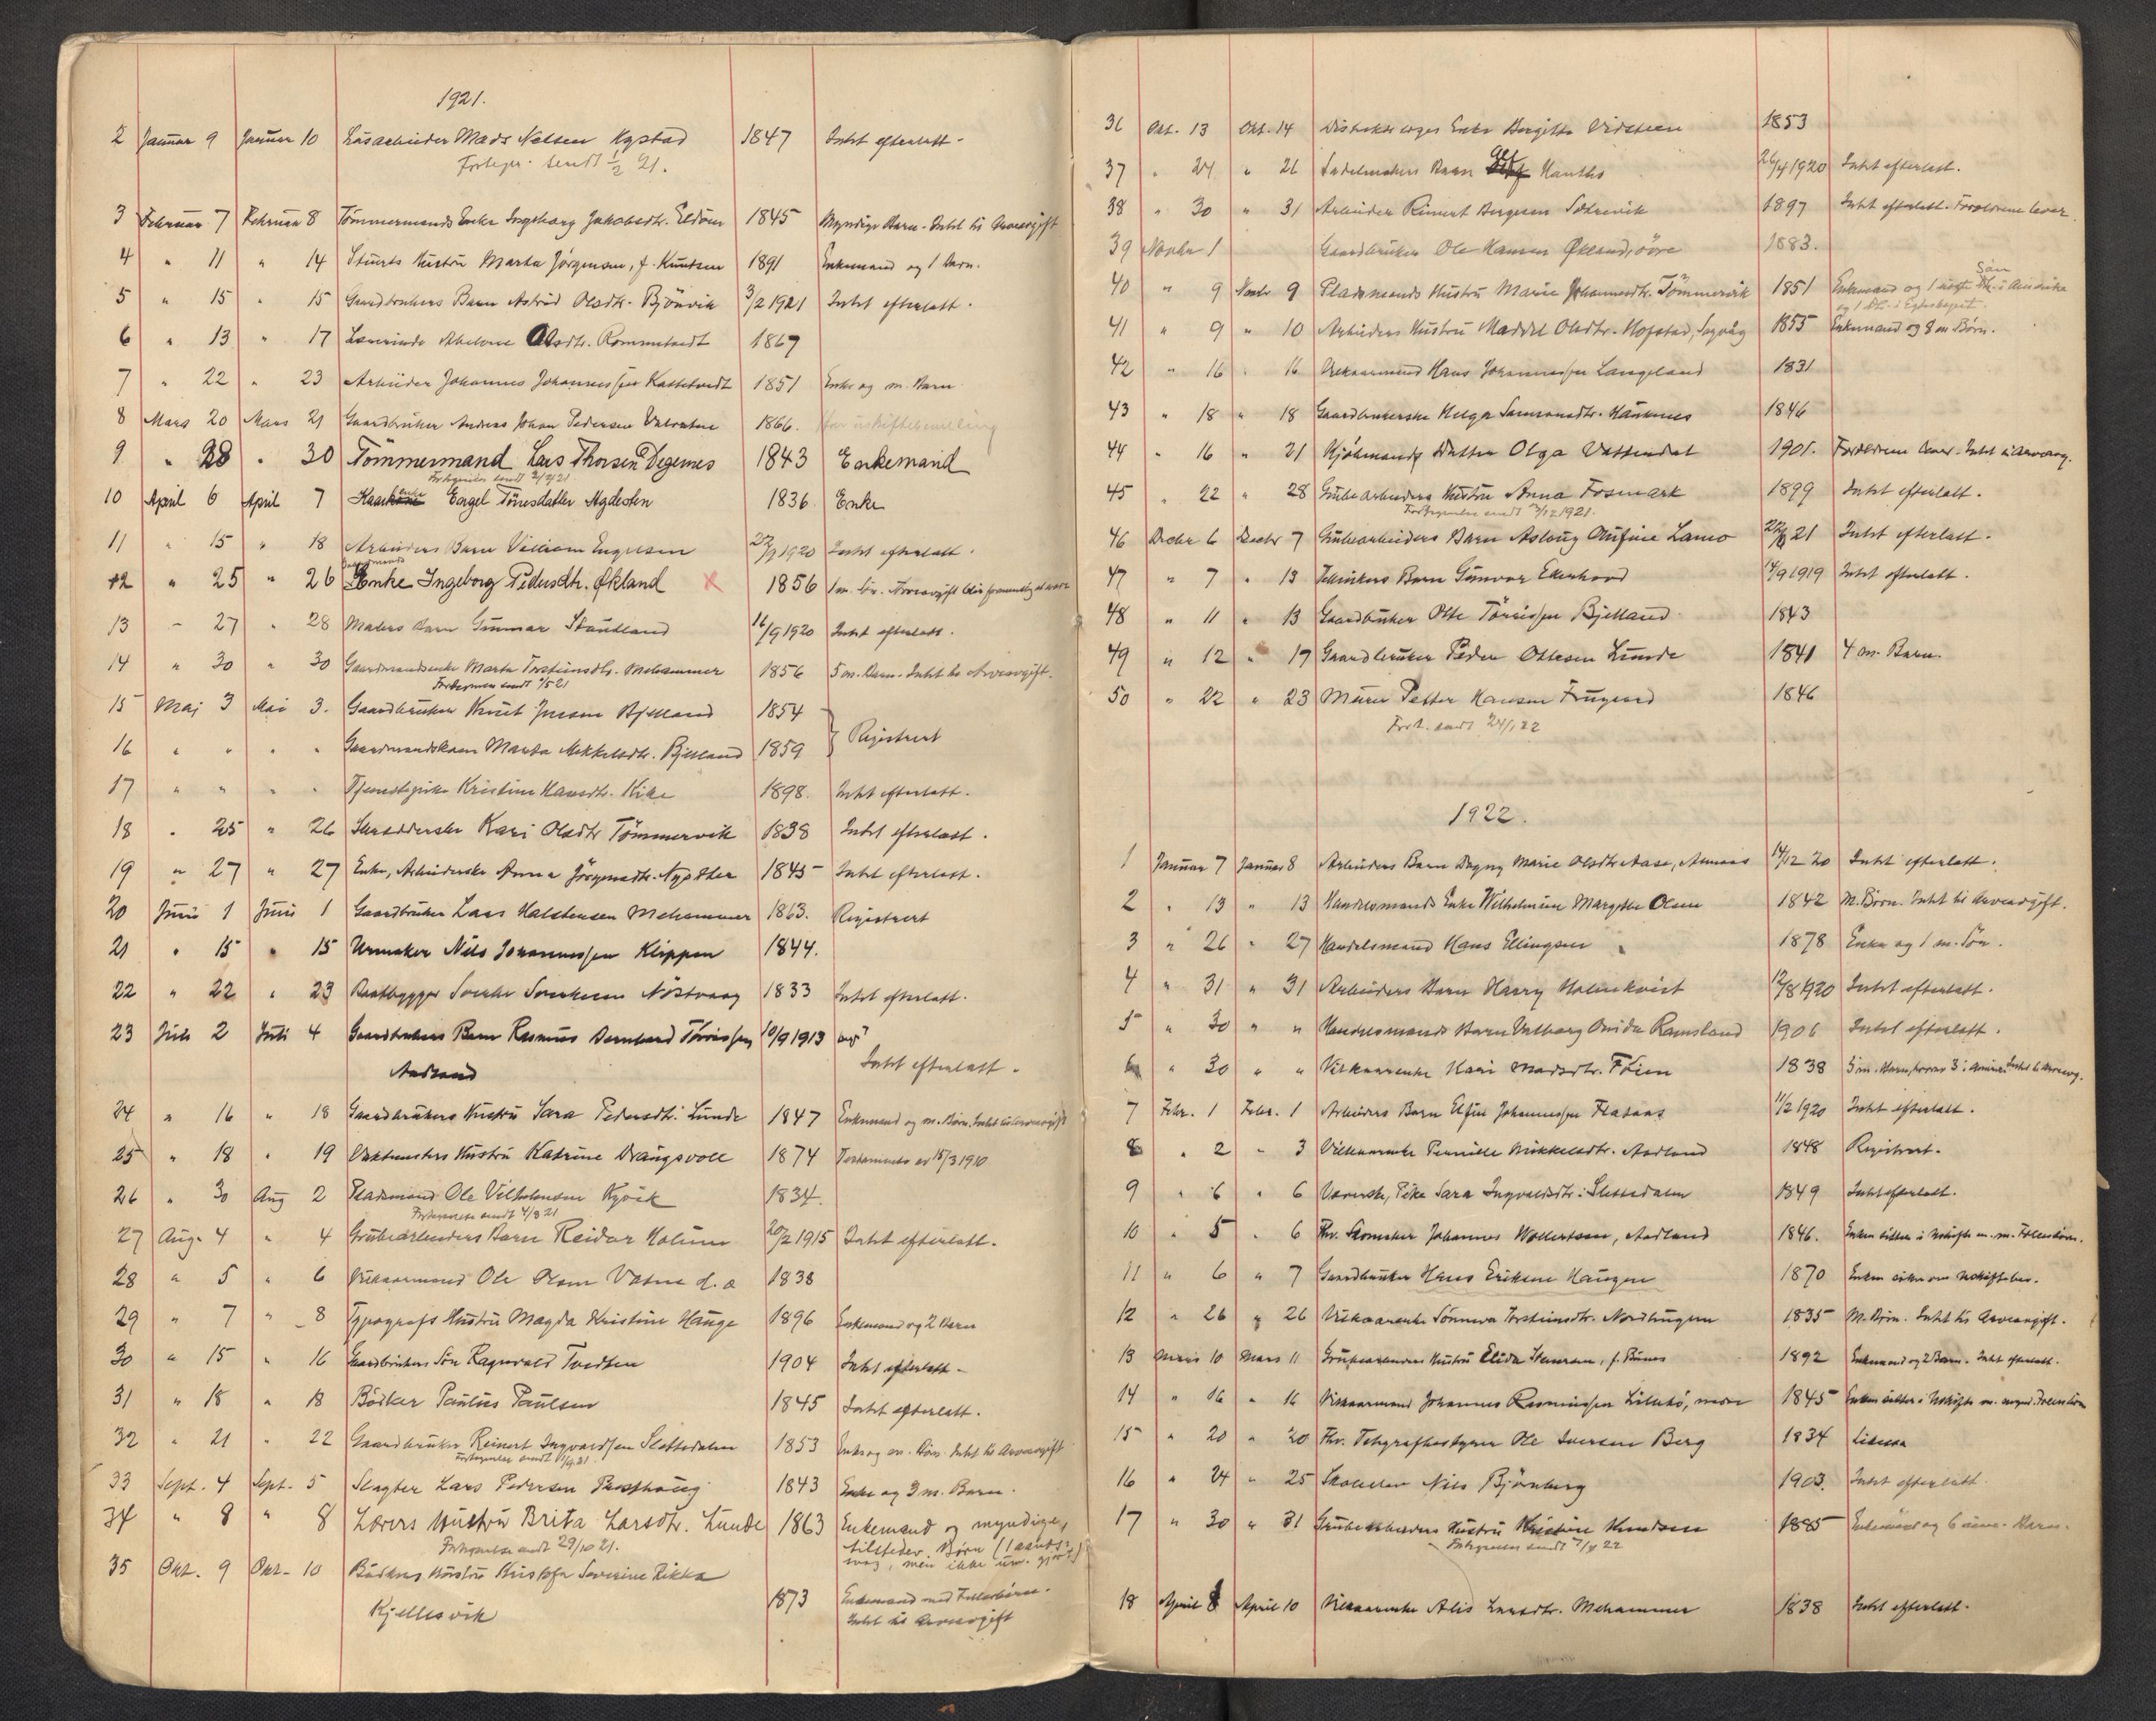 1921.
2 Januar 9 Januar 10 Løsarbeider Mads Nelsen Kystad 1847 Intet efterlatt -
Fortegn. sendt 1/2 21.
3 Februar 7 Februar 8 Tömmermands Enke Ingeborg Jakobsdtr. Eldöen 1845 Myndige Barn - Intet til Arveavgift
4 " 11 " 14 Stuerts Hustru Marta Jörgensen, f. Knutsen 1891 Enkemand og 1 Barn.
5 " 15 " 15 Gaardbrukers Barn Astrid Olsdtr. Björvik 3/2 1921 Intet efterlatt.
6 " 13 " 17 Lærerinde Abelone Olsdtr. Rommetvedt 1867
7 " 22 " 23 Arbeider Johannes Johannessen Kattetvedt 1851 Enke og m. Barn
8 Mars 20 Mars 21 Gaardbruker Anders Johan Pedersen 1866. har uskiftebevilling
9 " 28 " 30 Tömmermand Lars Thorsen Degernes 1843 Enkemand
Fortegnelse sendt 2/4 21
10 April 6 April 7 Kaarenke Engel Tönesdatter Agdesten 1836 Enke
11 " 15 " 18 Arbeiders Barn William Engelsen 27/9 1920 Intet efterlatt.
12 " 25 " 26 Enke Ingeborg Pedersdtr. Økland x 1856 1 m. Sön. Arveavgift
13 - 27 " 28 Malers Barn Gunnar Stautland 16/9 1920 Intet efterlatt.
14 " 30 " 30 Gaardmandsenke Marta Torsteinsdtr. Mehammer 1856 5 m. Barn. Intet til Arveavgift.
Fortegnelse sendt /5 21
15 Maj 3 Mai 3. Gaardbruker Knut Jensen Bjelland 1854
Registrert
16 " " " " Gaardmandskone Marta Mikkelsdtr. Bjelland 1859
17 " " " " Tjenestepike Kristine Hansdtr. Kike 1898. Intet efterlatt.
18 " 25 " 26 Skrædderske Kari Olsdtr Tömmervik 1838 Intet efterlatt.
19 " 27 " 27 Enke, Arbeiderske Anna Jörgensdtr. Nysæther 1845 Intet efterlatt.
20 Juni 1 Juni 1 Gaardbruker Lars Halstensen Mehammer 1863. Registrert
21 " 15 " 15 Urmaker Nils Johannessen Klippen 1844.
22 " 22 " 23 Baatbygger Sverke Sverkesen Nöstvaag 1833 Intet efterlatt.
23 Juli 2 Juli 4 Gaardbrukers Barn Rasmus Bernhard Thorsen 10/9 1913
Aadland Intet efterlatt.
24 " 16 " 18 Gaardbrukers Hustru Sara Pedersdtr. Lunde 1847 Enkemand og m. Börn. Intet til Arveavgift
25 " 18 " 19 Vaktmesters Hustru Katrine Drangsvoll 1874 Testamente av 15/3 1910
26 " 30 Aug 2 Pladsmand Ole Vilhelmsen Kyvik 1834.
Fortegnelse sendt 4/8 21
27 Aug. 4 " 4 Grubearbeiders Barn Reidar Holum 20/2 1915 Intet efterlatt.
28 " 5 " 6 Vilkaarmand Ole Olsen Vatne d. e 1838
29 " 7 " 8 Typografs Hustru Magda Kristine Hauge 1896 Enkemand og 2 Barn
30 " 15 " 16 Gaardbrukers Sön Ragnvald Tvedten 1904 Intet efterlatt -
31 " 18 " 18 Bödker Paulus Paulsen 1845 Intet efterlatt.
32 " 21 " 22 Gaardbruker Reinert Ingvaldsen Slettedalen 1853 Enke og m. Börn. Intet til Arveavgift
Fortegnelse sendt 1/9 21
33 Sept. 4 Sept. 5 Slagter Lars Pedersen Presthaug 1843 Enke og 3 m. Barn.
34 " 8 " 8 Lærers Hustru Brita Larsdtr. Lunde 1863 Enkemand og myndige,
tilstedev. Börn (1 aands-
svag, men ikke um. gjort)
Fortegnelse sendt 29/10 21.
35 Okt. 9 Okt - 10 Bödkers Hustru Kristofa Severine Rikka
Kjellesvik 1873 Enkemand med Fellesbörn.
Intet til Arveavgift
36 Okt. 13 Okt. 14 Distriktslæges Enke Bergitte Vidsteen 1853
37 " 24 " 26 Sadelmakers Barn Alf Hanthо 26/4 1920 Intet efterlatt.
38 " 30 " 31 Arbeider Rimert Bergesen Sætrevik 1897 Intet efterlatt. Forældrene lever.
39 Novbr 1 Gaardbruker Ole Hansen Økland, övre 1883.
40 " 9 Novbr 9 Pladsmands Hustru Marie Johannesdtr. Tömmervik 1851 Enkemand og 1 Sön i Amerika
og 1 Dtr. i Egteskapet.
41 " 9 " 10 Arbeiders Hustru Maddel Olsdtr. Hofstad, Sagvåg 1855 Enkemand og 8 m Börn.
42 " 16 " 16 Vilkaarmand Hans Johannessen Langeland 1831
43 " 18 " 18 Gaardbrukerske Helga Samsonsdtr. Haukenes 1846
44 " 16 " 21 Kjöbmands Datter Olga Vattendal 1901. Forældrene lever - Intet til Arveavg.
45 " 22 " 28 Grubearbeiders Hustru Anna Fosmark 1899 Intet efterlatt.
Fortegnelse sendt /12 1921.
46 Decbr 6 Decbr 7 Grubearbeiders Barn Aslaug Aufine Lamo 21 Intet efterlatt.
47 " 7 " 13 Teknikers Barn Gunvor Ekerhovd 14/9 1919 Intet efterlatt.
48 " 11 " 13 Gaardbruker Olle Törrissen Bjelland 1843
49 " 12 " 17 Gaardbruker Peder Ottesen Lunde 1841 4 m. Barn.
50 " 22 " 23 Murer Petter Hansen Frugaard 1846
Fort. sendt 24/1 22
1922.
1 Januar 7 Januar 8 Arbeiders Barn Dagny Marie Olsdtr Aase, 14/12 20 Intet efterlatt.
2 " 13 " 13 Handelsmands Enke Wilhelmine Margrethe Olsen 1842 M. Börn. Intet til Arveavgift.
3 " 26 " 27 Handelsmand Hans Ellingsen 1878 Enke og 1 m. Sön.
4 " 31 " 31 Arbeiders Barn Harry Holmkvist 12/8 1920 Intet efterlatt.
5 " 30 " " Handelsmands Barn Valborg Ovida Ramsland 1906 Intet efterlatt.
6 " 30 " " Vilkaarenke Kari Madsdtr. Föien 1838 5 m. Barn, hvorav 3 i Amerika. Intet til Arveavg.
7 Febr. 1 Febr. 1 Arbeiders Barn Elfin Johannessen Flataas 11/2 1920 Intet efterlatt.
8 " 2 " 3 Vilkaarenke Pernille Mikkelsdtr. Aadland 1848 Registrert.
9 " 6 " 6 Væverske, Pike Sara Ingvaldsdtr. Slettedalen 1849 Intet efterlatt.
10 " 5 " 6 Fhv. Skomaker Johannes Wollertsen, Aadland 1846. Enken sitter i Uskifte m. m. Fællesbörn.
11 " 6 " 7 Gaardbruker Hans Eriksen Haugen 1870 Enken söker om Uskiftebev.
12 " 26 " 26 Vilkaarenke Sönneva Torsteinsdtr. Nordhuglen 1835 M. Börn. Intet til Arveavgift.
13 Mars 10 Mars 11 Grubearbeiders Hustru Elida Stensen, f. Bunes 1892 Enkemand og 2 Barn. Intet efterlatt.
14 " 16 " 16 Vilkaarmand Johannes Rasmussen Lillebö, 1845 Enken sitter i Uskifte m. mynd. Fællesbörn
15 " 20 " 20 Fhv. Telegrafbestyrer Ole Iversen Berg 1834
16 " 24 " 25 Skoleelev Nils Björnberg 1903. Intet efterlatt
17 " 30 " 31 Grubearbeiders Hustru Kristine Knudsen 1885 Enkemand og 6 Barn.
Fortegnelse sendt /4 22
18 April 8 April 10 Vilkaarenke Alis Larsdtr. Mehammer 1838 Intet efterlatt.